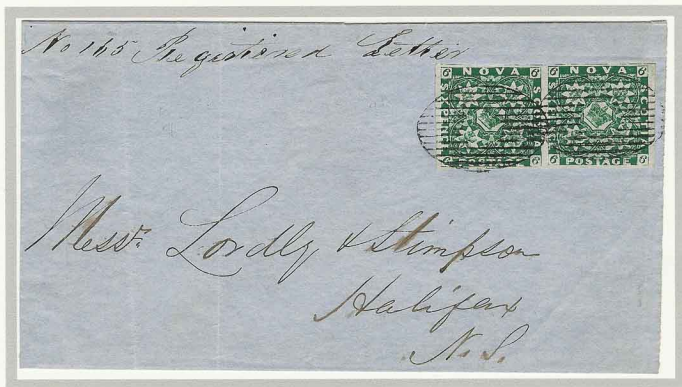 No 165 Registered Letter
6 NOVA 6 6 NOVA 6
6 6 6 POSTAGE 6
Messrs Lordly & Stimpson
Halifax
N.S.